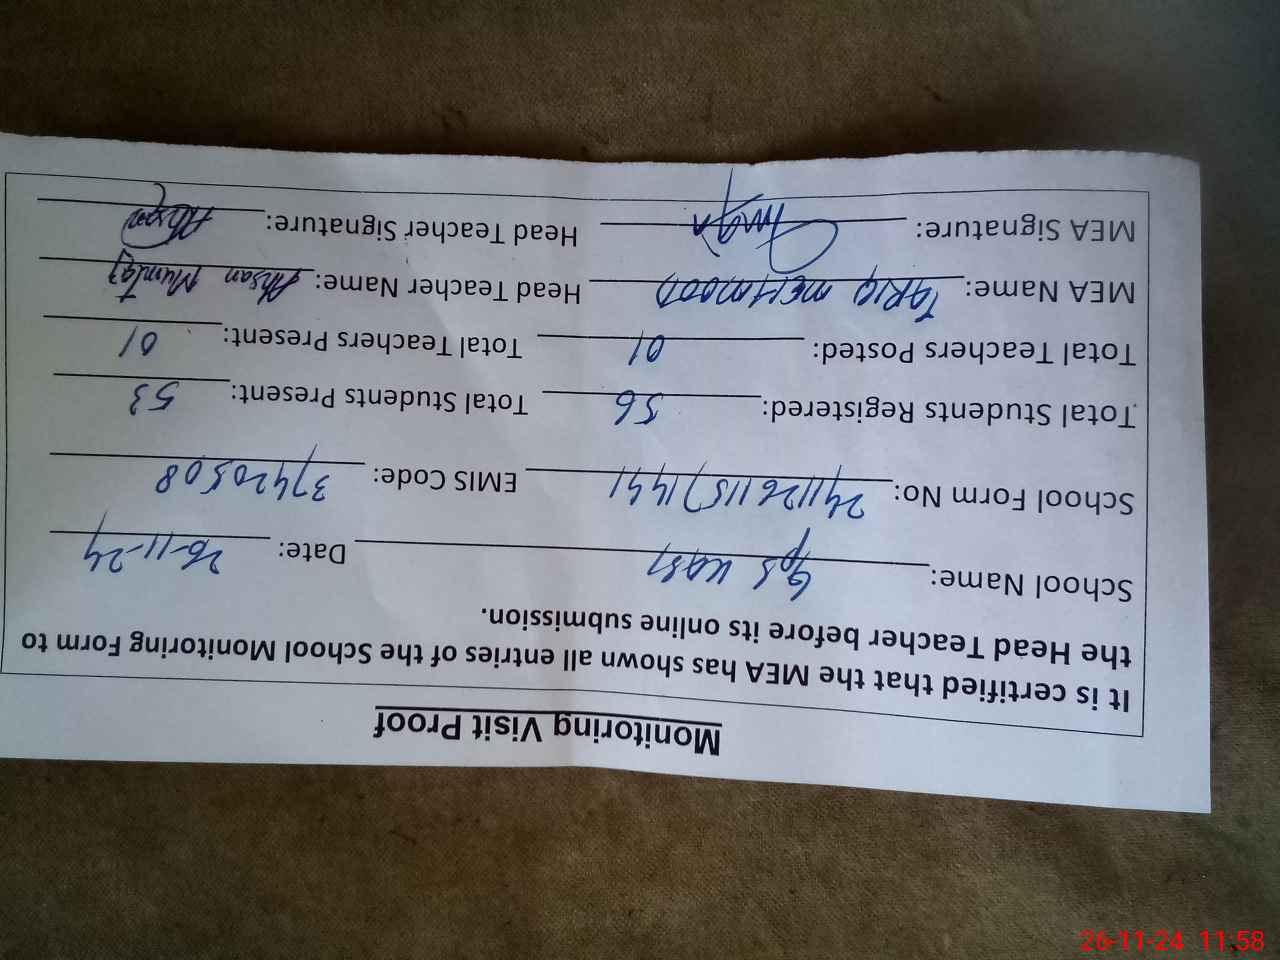 Monitoring Visit Proof
It is certified that the MEA has shown all entries of the School Monitoring Form to
the Head Teacher before its online submission.
School Name: Gps Date: 26-11-24
School Form No: EMIS Code: 37420508
Total Students Registered: 56 Total Students Present: 53
Total Teachers Posted: 01 Total Teachers Present: 01
MEA Name: TARIQ MEHMOOD Head Teacher Name: Ahsan Mumtaz
MEA Signature: Head Teacher Signature: Ahsan
26-11-24 11:58